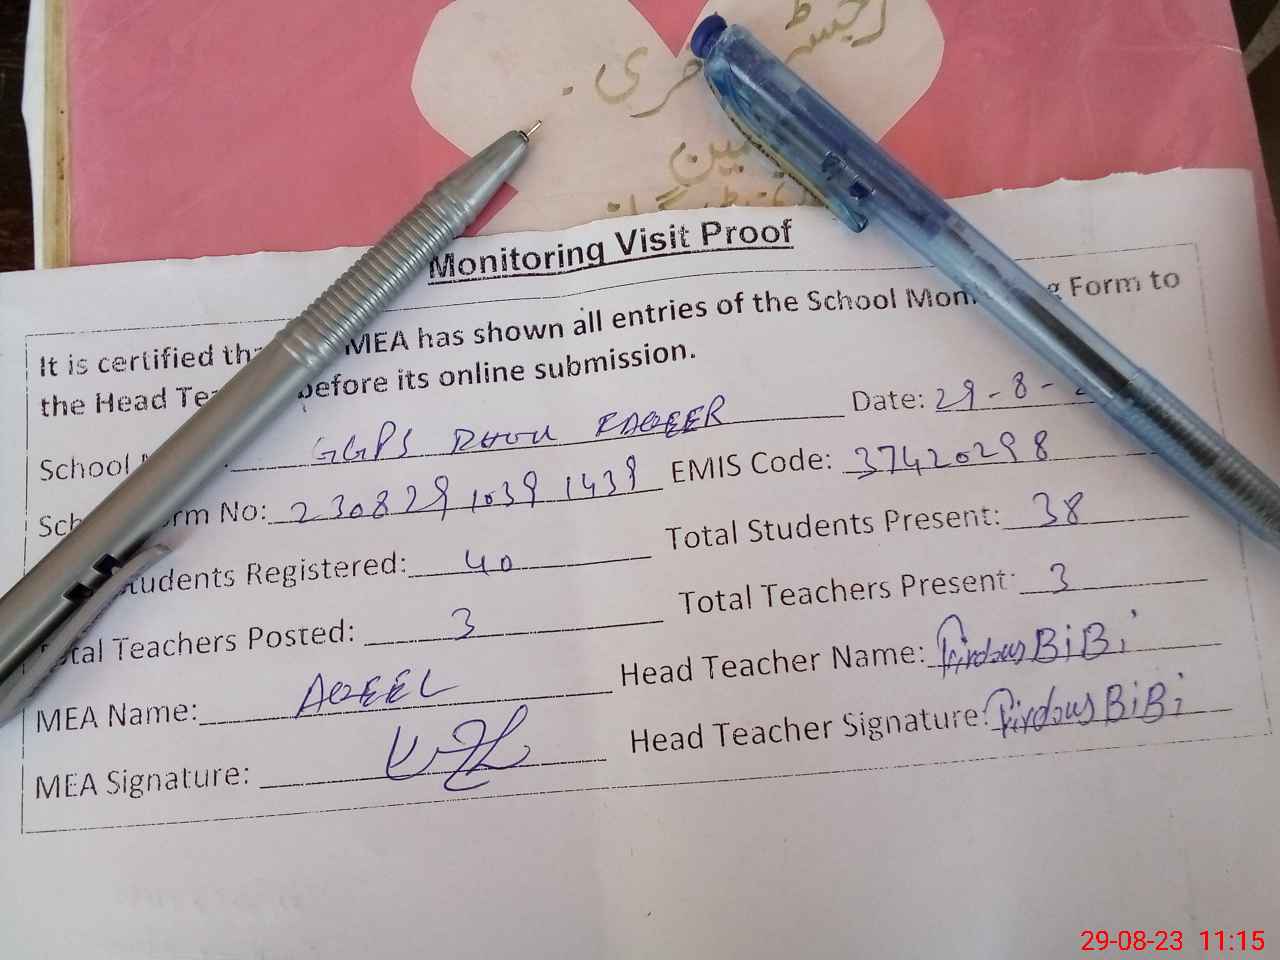 رجسٹر
مبین
Monitoring Visit Proof
It is certified th MEA has shown all entries of the School Mon g Form to
the Head Te before its online submission.
School GGPS DHOU FAQEER Date: 29-8-
Sch rm No: 230829 1039 1439 EMIS Code: 37420298
tudents Registered: 40 Total Students Present: 38
tal Teachers Posted: 3 Total Teachers Present: 3
MEA Name: AQEEL Head Teacher Name: Firdous BiBi
MEA Signature: Head Teacher Signature: Firdous BiBi
29-08-23 11:15